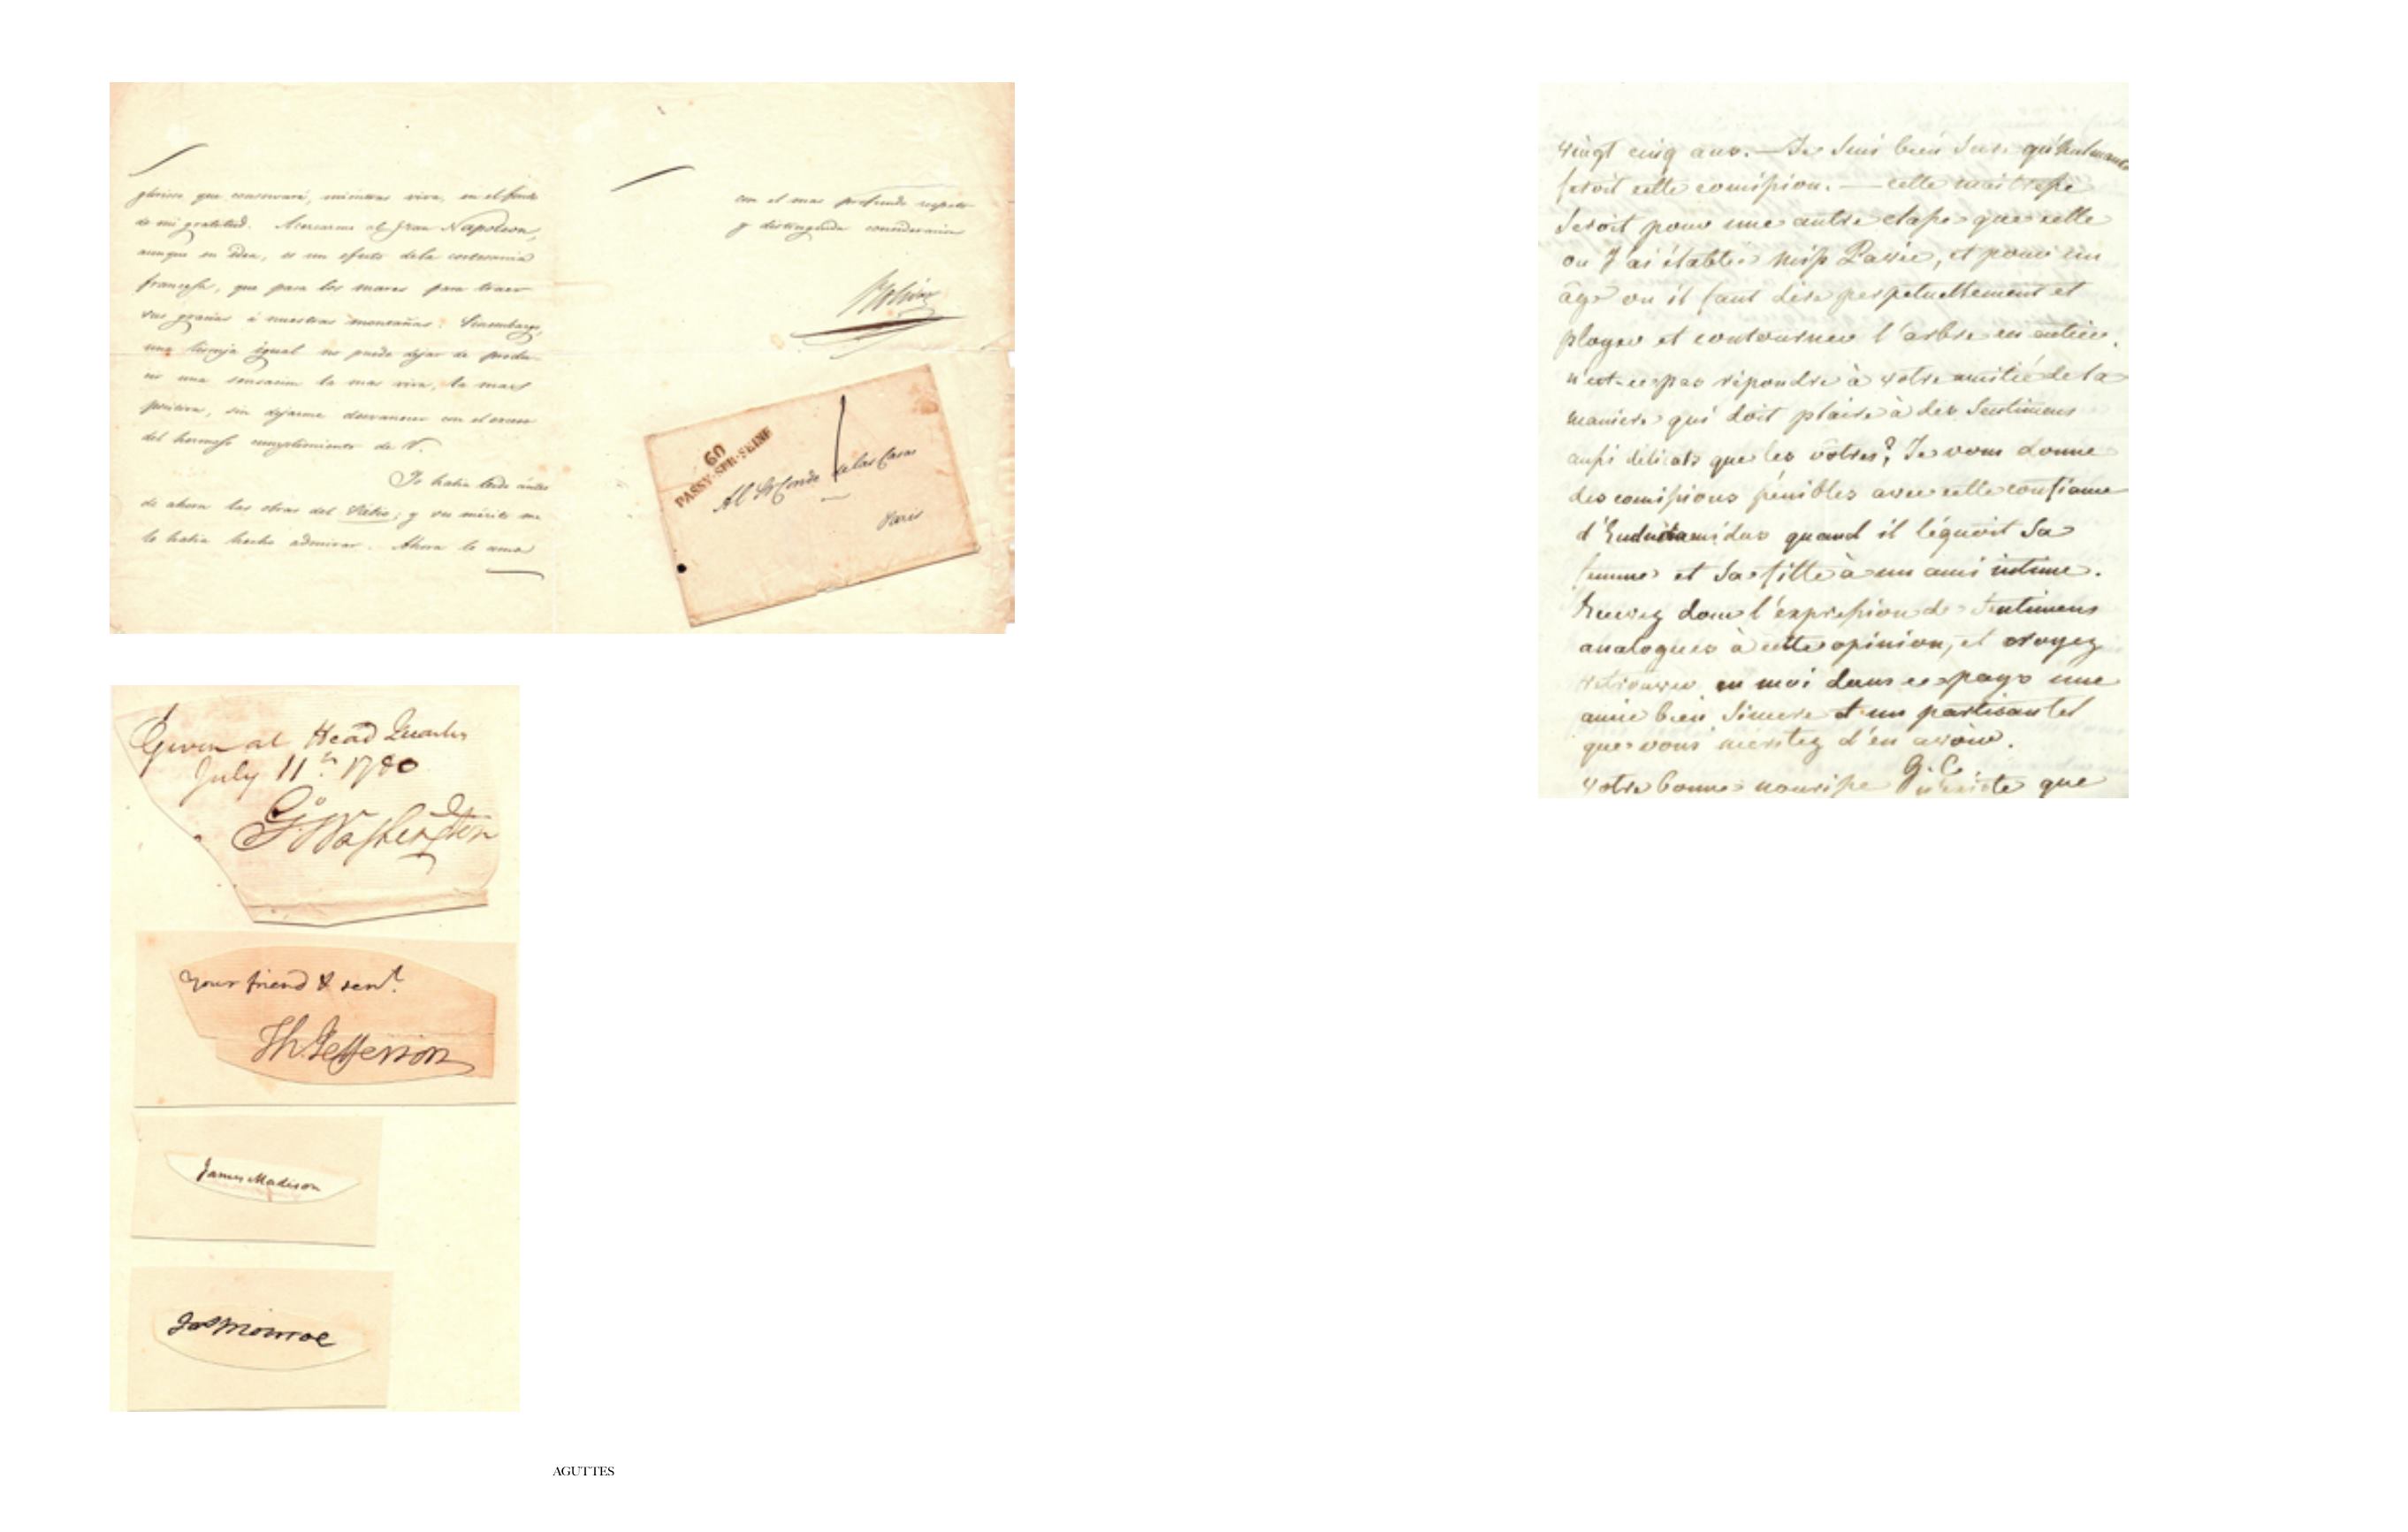 gloriosa que conservaré, mientras viva, en el fondo
de mi gratitud. Acercarme al Gran Napoleon,
aunque en idea, es un efecto de la cortesania
francesa, que pasa los mares para traer
sus gracias á nuestras montañas. Sinembargo,
una lisonja igual no puede dejar de produ-
cir una sensacion la mas viva, la mas
positiva, sin dejarme desvanecer con el exceso
del hermoso cumplimiento de V.
Yo habia leido ántes
de ahora las obras del Sábio; y su mérito me
lo habia hecho admirar. Ahora lo amo
con el mas profundo respeto
y distinguida consideracion
Bolivar
60
PASSY-SUR-SEINE
Al Sr Conde de las Casas
Paris
Given at Head Quarters
July 11th 1780
Go Washington
Your friend & servt
Th Jefferson
James Madison
Jas Monroe
AGUTTES
vingt cinq ans. — Je suis bien sure qu'
feroit cette comission. — cette maitresse
seroit pour une autre classe que celle
ou J'ai établie Miss Parrie, et pour un
âge ou il faut dire perpetuellement et
ployer et contourner l'arbre en entier.
n'est-ce pas répondre à votre amitié de la
maniere qui doit plaire à des Sentimens
aussi délicats que les vôtres? Je vous donne
des comissions pénibles avec cette confiance
d'Eudamidas quand il léguoit Sa
femme et Sa fille à un ami intime.
Recevez donc l'expression de Sentimens
analogues à cette opinion, et croyez
retrouver en moi dans ce pays une
amie bien Sincere et un partisan tel
que vous meritez d'en avoir.
G. C.
votre bonne nourisse n'existe que